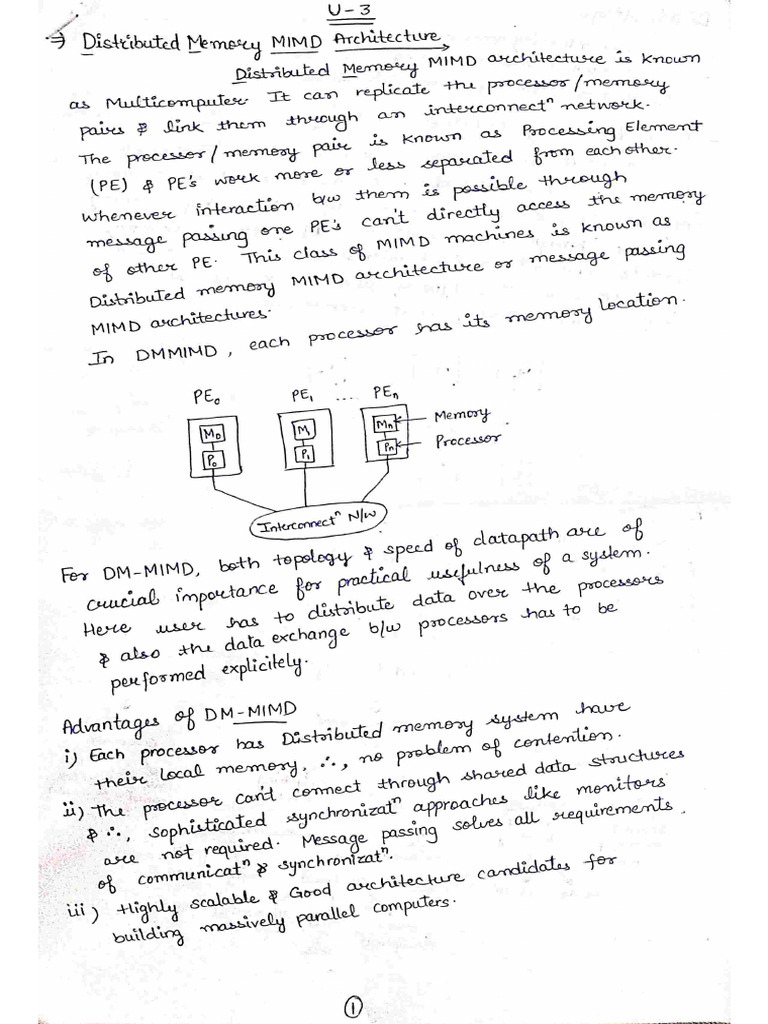 U-3
⇒ Distributed Memory MIMD Architecture
Distributed Memory MIMD architecture is known
as Multicomputer. It can replicate the processor/memory
pairs & link them through an interconnectⁿ network.
The processor/memory pair is known as Processing Element
(PE) & PE's work more or less separated from each other.
Whenever interaction b/w them is possible through
message passing one PE's can't directly access the memory
of other PE. This class of MIMD machines is known as
Distributed memory MIMD architecture or message passing
MIMD architectures.
In DMMIMD, each processor has its memory location.
PE₀ PE₁ .... PEₙ
M₀ M₁ Mₙ ← Memory
P₀ P₁ Pₙ ← Processor
Interconnectⁿ N/W
For DM-MIMD, both topology & speed of datapath are of
crucial importance for practical usefulness of a system.
Here user has to distribute data over the processors
& also the data exchange b/w processors has to be
performed explicitely.
Advantages of DM-MIMD
i) Each processor has Distributed memory system have
their local memory, ∴, no problem of contention.
ii) The processor can't connect through shared data structures
& ∴, sophisticated synchronizatⁿ approaches like monitors
are not required. Message passing solves all requirements
of communicatⁿ & synchronizatⁿ.
iii) Highly scalable & Good architecture candidates for
building massively parallel computers.
1